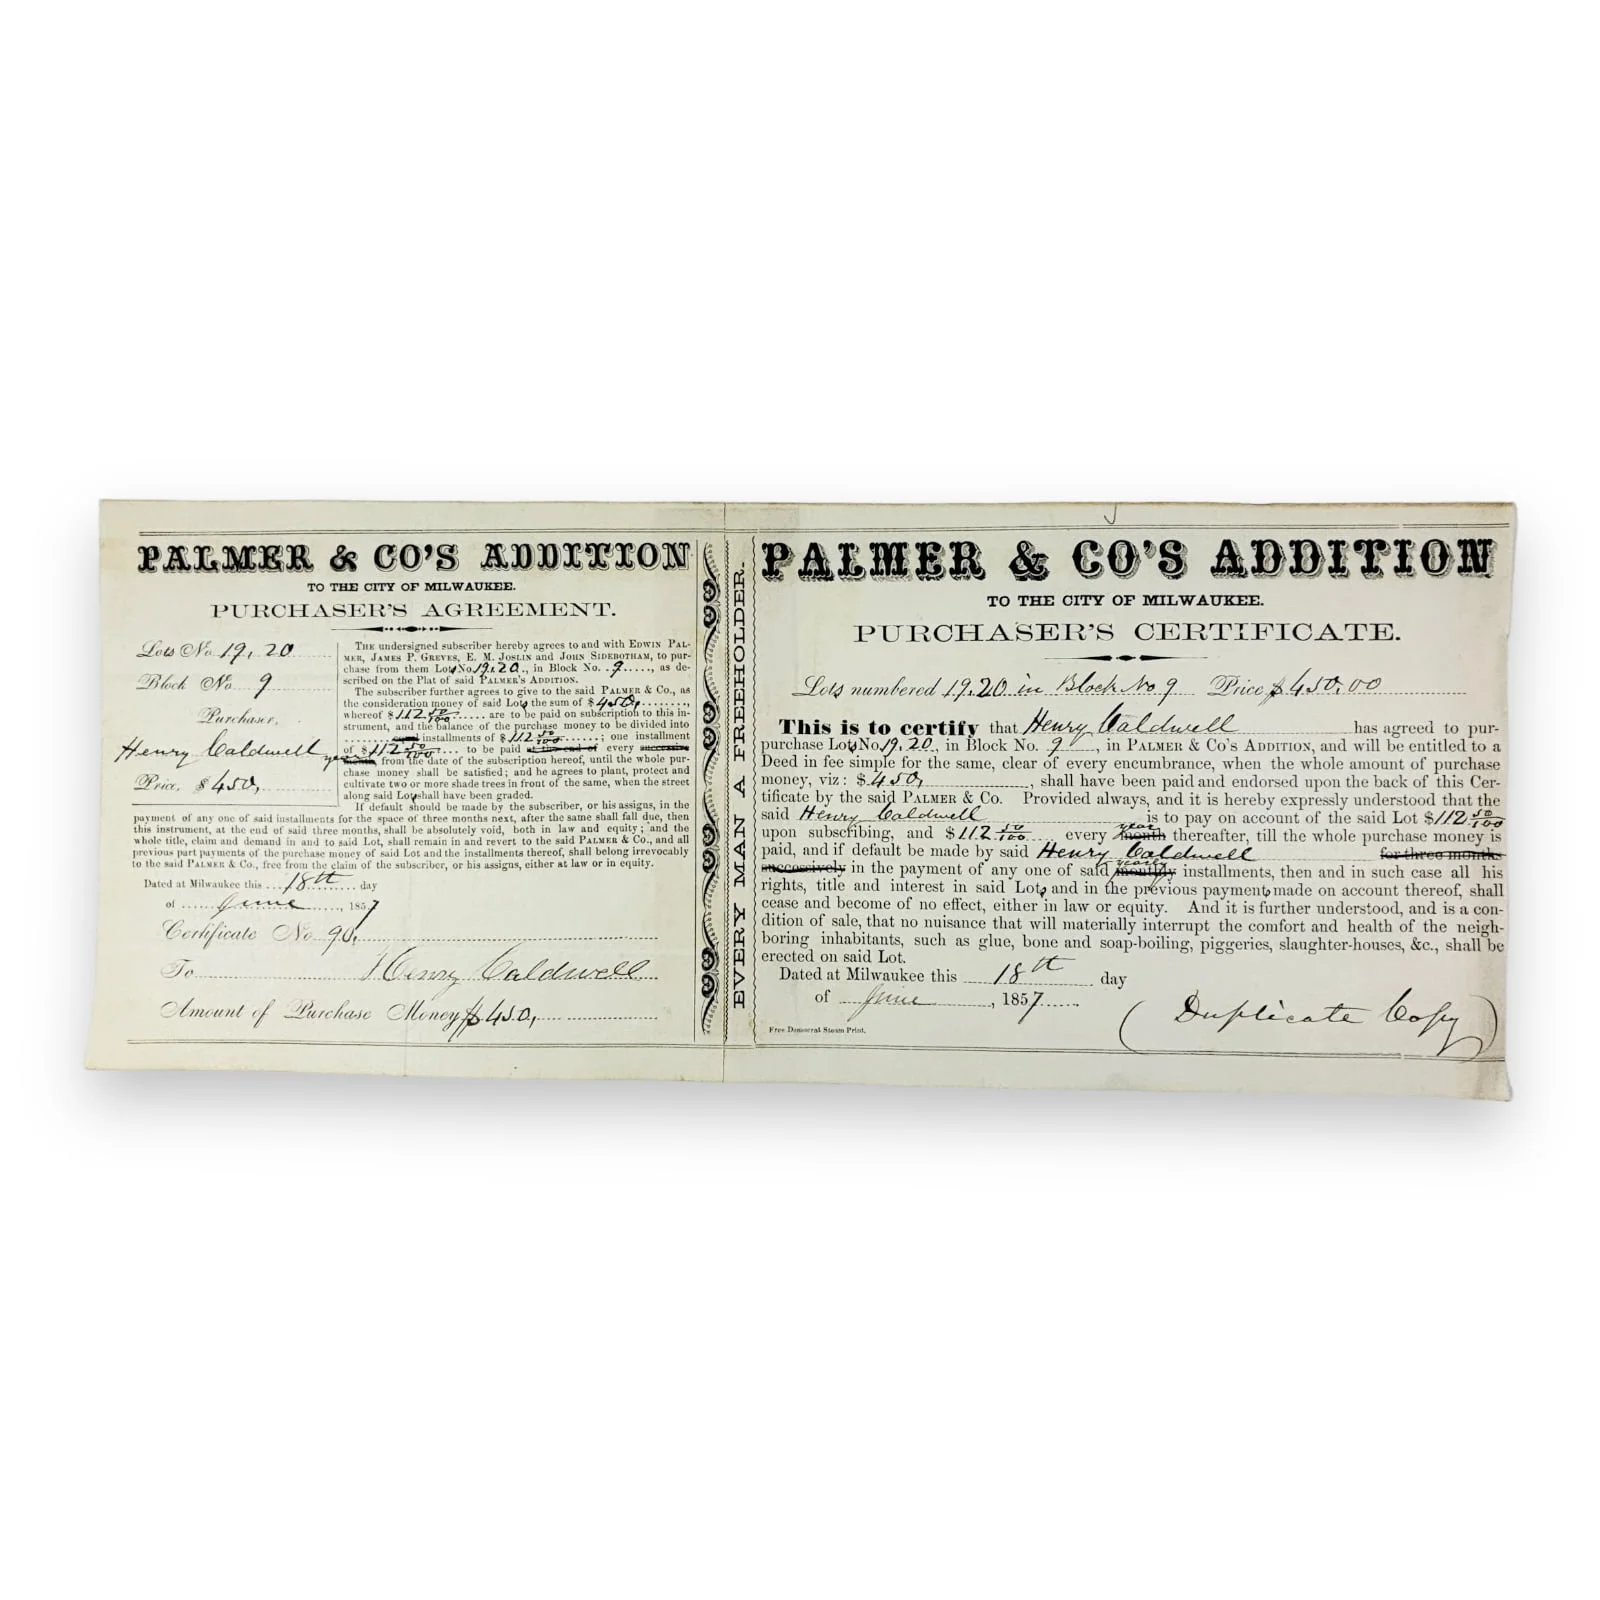 PALMER & CO'S ADDITION
TO THE CITY OF MILWAUKEE.
PURCHASER'S AGREEMENT.
Lots No. 19, 20
Block No. 9
Purchaser,
Henry Caldwell
Price, $ 450,
The undersigned subscriber hereby agrees to and with Edwin Pal-
mer, James P. Greves, E. M. Joslin and John Siderotham, to pur-
chase from them Lots No. 19, 20, in Block No. 9, as de-
scribed on the Plat of said Palmer's Addition.
The subscriber further agrees to give to the said Palmer & Co., as
the consideration money of said Lots the sum of $450,
whereof $112 50/100 are to be paid on subscription to this in-
strument, and the balance of the purchase money to be divided into
equal installments of $112 50/100; one installment
of $112 50/100 to be paid at the end of every successive
year month, from the date of the subscription hereof, until the whole pur-
chase money shall be satisfied; and he agrees to plant, protect and
cultivate two or more shade trees in front of the same, when the street
along said Lots shall have been graded.
If default should be made by the subscriber, or his assigns, in the
payment of any one of said installments for the space of three months next, after the same shall fall due, then
this instrument, at the end of said three months, shall be absolutely void, both in law and equity; and the
whole title, claim and demand in and to said Lot, shall remain in and revert to the said Palmer & Co., and all
previous part payments of the purchase money of said Lot and the installments thereof, shall belong irrevocably
to the said Palmer & Co., free from the claim of the subscriber, or his assigns, either at law or in equity.
Dated at Milwaukee this 18th day
of June, 1857
Certificate No. 90,
To Henry Caldwell
Amount of Purchase Money $450,
EVERY MAN A FREEHOLDER.
PALMER & CO'S ADDITION
TO THE CITY OF MILWAUKEE.
PURCHASER'S CERTIFICATE.
Lots numbered 19, 20 in Block No 9 Price $450.00
This is to certify that Henry Caldwell has agreed to pur-
purchase Lots No. 19, 20, in Block No. 9, in Palmer & Co's Addition, and will be entitled to a
Deed in fee simple for the same, clear of every encumbrance, when the whole amount of purchase
money, viz: $450, shall have been paid and endorsed upon the back of this Cer-
tificate by the said Palmer & Co. Provided always, and it is hereby expressly understood that the
said Henry Caldwell is to pay on account of the said Lot $112 50/100
upon subscribing, and $112 50/100 every year month thereafter, till the whole purchase money is
paid, and if default be made by said Henry Caldwell for three months
successively in the payment of any one of said yearly monthly installments, then and in such case all his
rights, title and interest in said Lots and in the previous payments made on account thereof, shall
cease and become of no effect, either in law or equity. And it is further understood, and is a con-
dition of sale, that no nuisance that will materially interrupt the comfort and health of the neigh-
boring inhabitants, such as glue, bone and soap-boiling, piggeries, slaughter-houses, &c., shall be
erected on said Lot.
Dated at Milwaukee this 18th day
of June, 1857
(Duplicate Copy)
Free Democrat Steam Print.